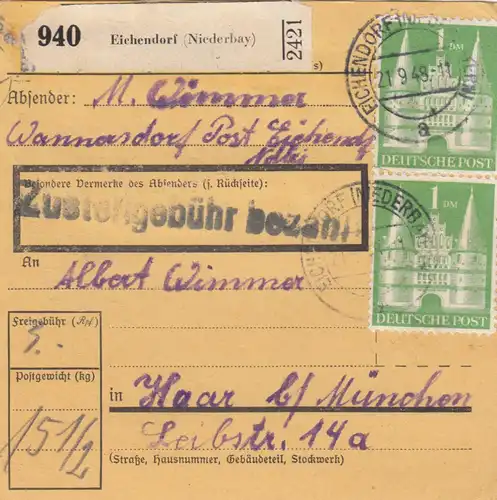 940
Eichendorf (Niederbay)
2421
s)
Absender: M. Wimmer
Wannersdorf Post Eichendf
Ndby
Besondere Vermerke des Absenders (s. Rückseite):
Zustellgebühr bezahlt
An Albert Wimmer
Freigebühr (Rℳ)
Postgewicht (kg)
15 1/2
in Haar b/ München
Leibstr. 14a
(Straße, Hausnummer, Gebäudeteil, Stockwerk)
1 DM
DEUTSCHE POST
1 DM
DEUTSCHE POST
EICHENDORF (NIEDERBAY)
21.9.49
a